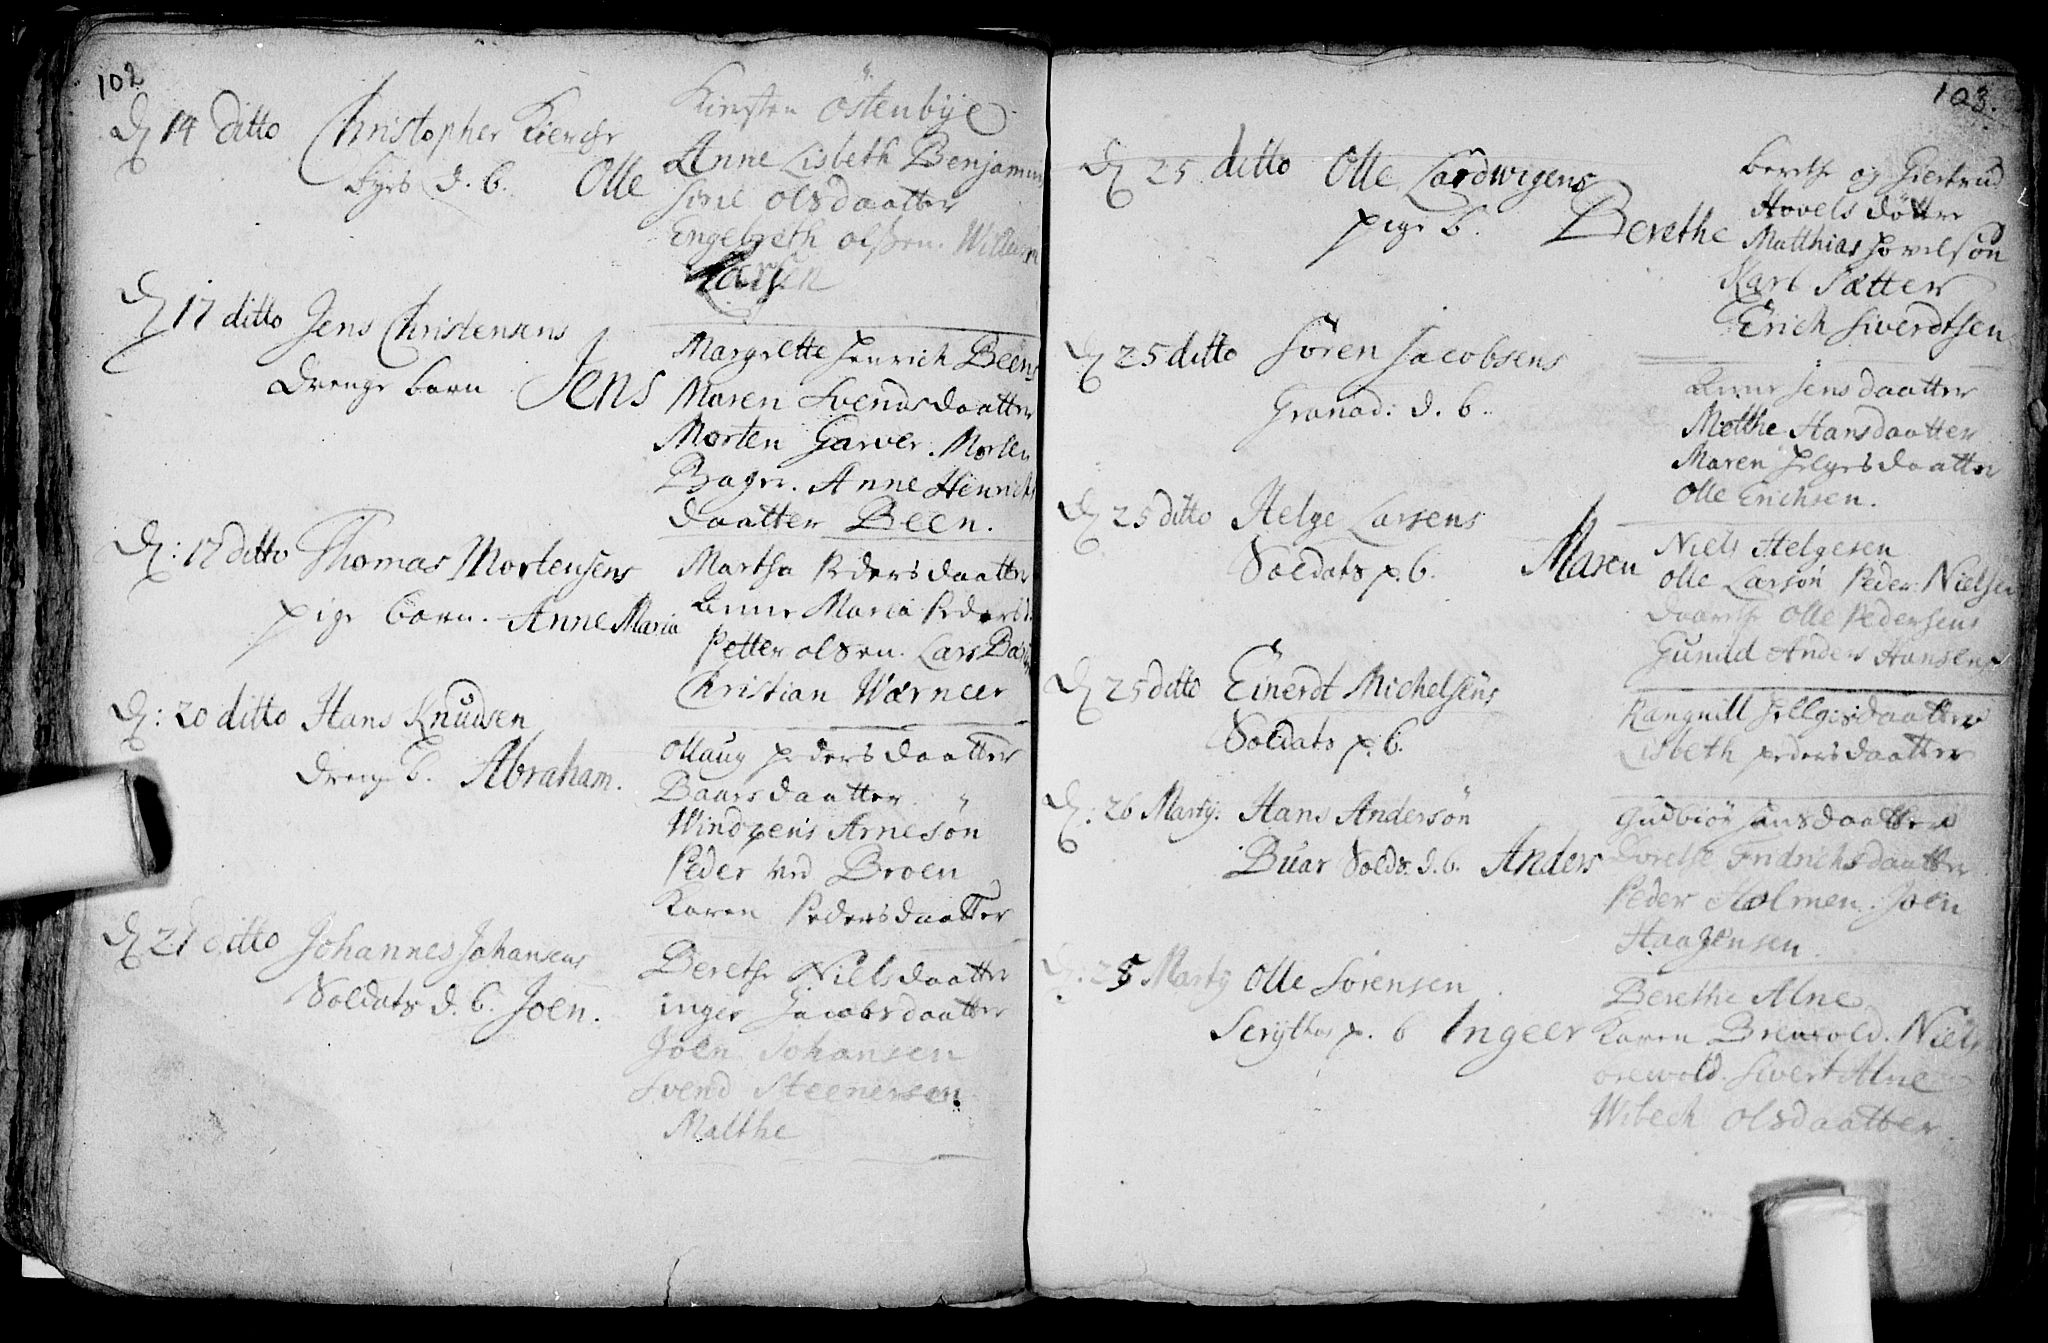 102
D 14 ditto Christopher Kierche
byes d. b. Olle
Kiersten Östenbye
Anne Lisbeth Benjamins
Sirie Olsdaatter
Engebreth Olssen. Willum
Larsen
D 17 ditto Jens Christensens
Drenge barn Jens
Margrette Henrich Beens
Maren Svendsdaatter
Morten Garver. Morten
Bager. Anne Henrichs
daatter Been.
D: 17 ditto Thomas Mortensens
pige barn. Anne Maria
Martha Pedersdaatter
Anne Maria Peders
Petter Olsen. Lars
Christian Wærneer
D: 20 ditto Hans Knudsen
Dreng b. Abraham.
Ollaug Pedersdaatter
Baarsdaatter "
Arnesön
Peder ved Broen
Karen Pedersdaatter
D 21 ditto Johannes Johansens
Soldats d. b. Joen.
Berethe Nielsdaatter
inger Jacobsdaatter
Joen Johansen
Svend Steenersen.
Malthe
103.
D 25 ditto Olle Lardwigens
pige b. Berethe
berthe og Giertrud
Hovels döttre
Matthias Hovelsön
Karl Sætter
Erich Siverdtsen
D 25 ditto Sören Jacobsens
Granad: d. b.
Anne Jensdaatter
Malthe Hansdaatter
Maren Helgesdaatter
Olle Erichsen.
D 25 ditto Helge Larsens
Soldats p. b. Maren
Niels Helgesen
Olle Larsön Peder Nielsen
Olle Pedersens
Gunild Anders Hansens
D 25 ditto Einerdt Michelsens
Soldats p. b.
Rangnill Hellgesdaatter
Lisbeth pedersdaatter
D: 26 Martÿ: Hans Andersön
Buar Solds. d. b. Anders
Gudbiör Hansdaatter
Dorethe Fridrichsdaatter
Peder Holmen. Joen
Haagensen
D: 28 Martÿ Olle Sörensen
p. b Ingeer
Berethe Alne
Karen Brenvold. Niels
Sivert Alne
Wibech Olsdaatter.